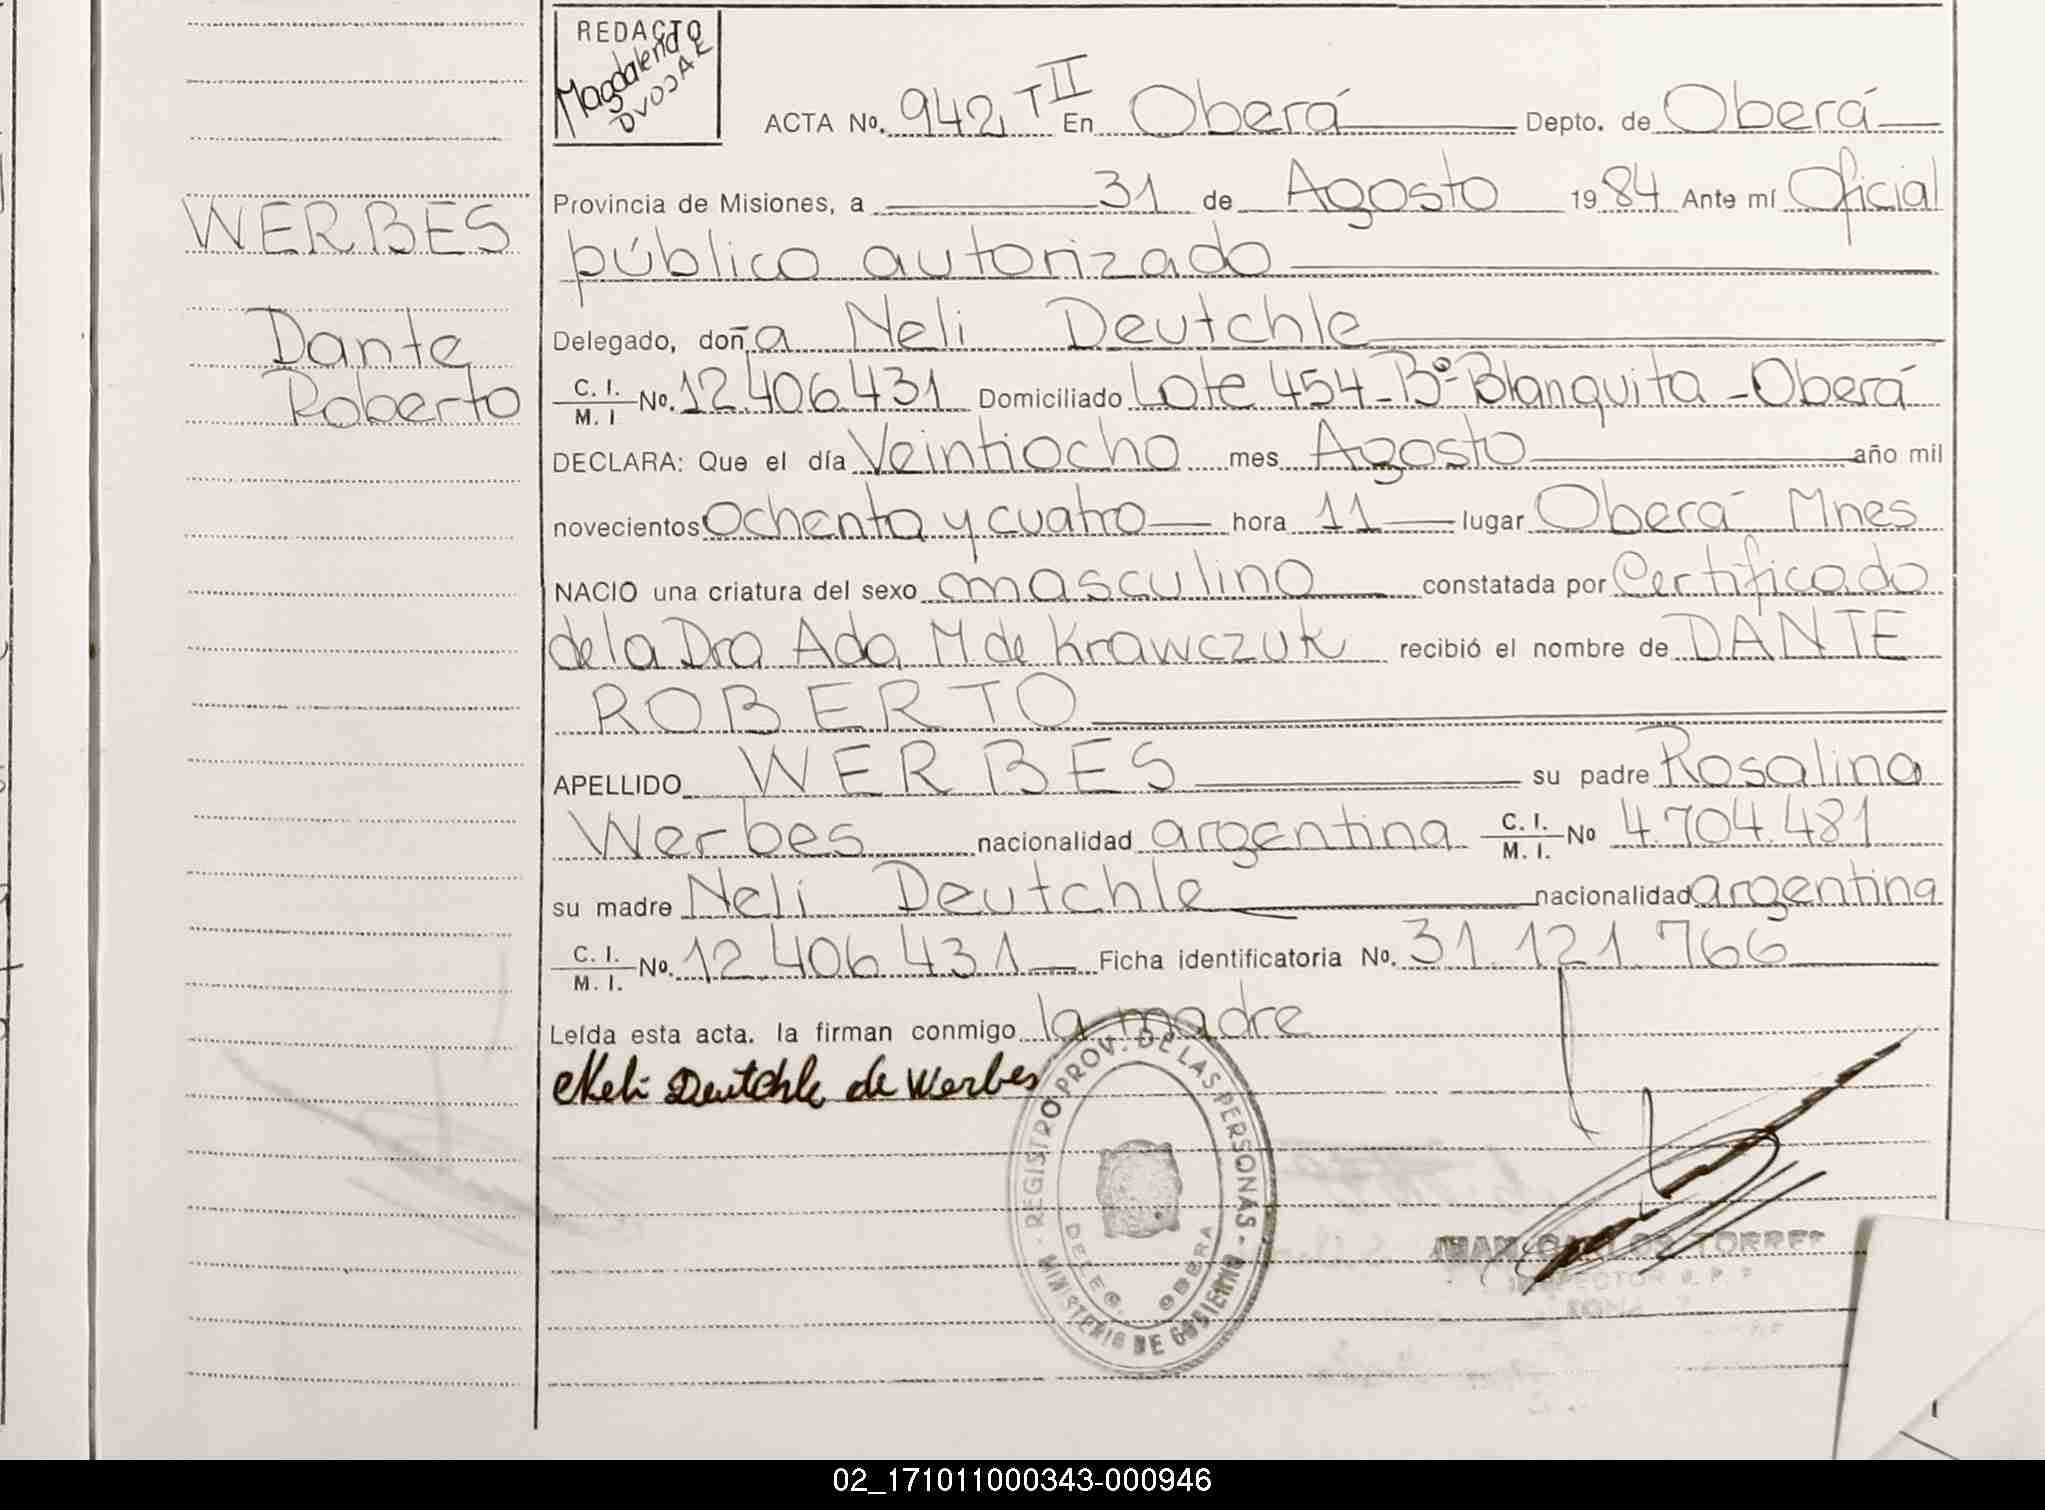 REDACTO
Magdalena
DVOJAK
ACTA No. 942 T II En Oberá Depto. de Oberá
Provincia de Misiones, a 31 de Agosto 1984 Ante mí Oficial
público autorizado
WERBES
Delegado, doña Neli Deutchle
Dante
C. I. / M. I No. 12.406.431 Domiciliado Lote 454-Bº-Blanquita-Oberá
Roberto
DECLARA: Que el día Veintiocho mes Agosto año mil
novecientos Ochenta y cuatro hora 11 lugar Oberá Mnes
NACIO una criatura del sexo masculino constatada por Certificado
de la Dra Ada M. de Krawczuk recibió el nombre de DANTE
ROBERTO
APELLIDO WERBES su padre Rosalino
Werbes nacionalidad argentina C. I. / M. I. No 4.704.481
su madre Neli Deutchle nacionalidad argentina
C. I. / M. I. No. 12.406.431 Ficha identificatoria No. 31.121.766
Leída esta acta. la firman conmigo la madre
Neli Deutchle de Werbes
REGISTRO PROV. DE LAS PERSONAS - MINISTERIO DE GOBIERNO -
DELEG. OBERA
JUAN CARLOS TORRES
INSPECTOR R. P. P.
ZONA
02_171011000343-000946